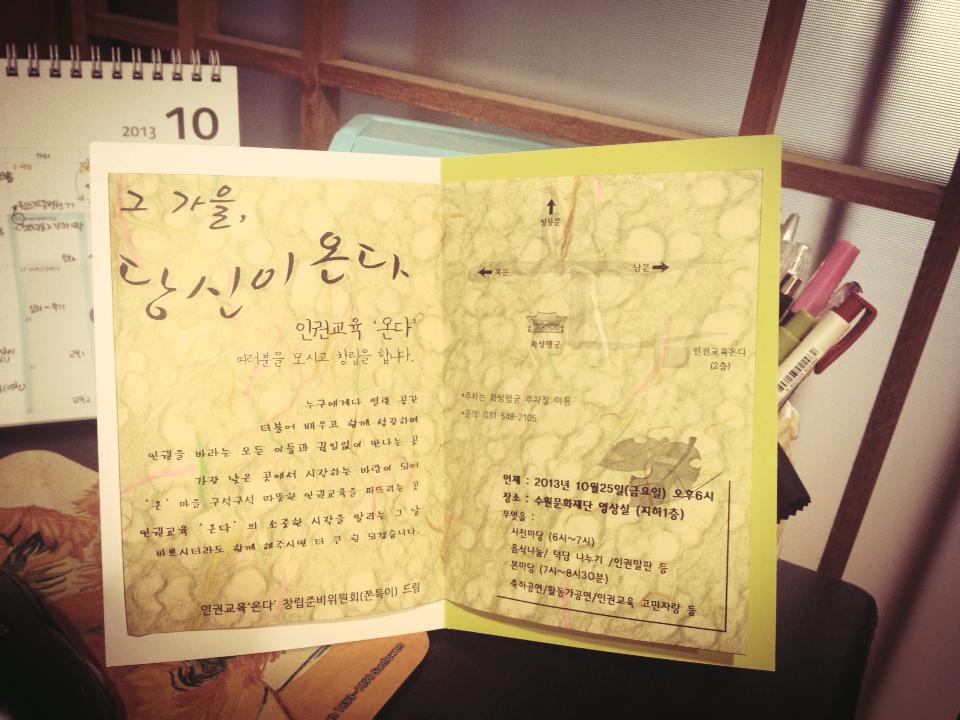 2013 10
THU
그 가을,
당신이 온다
인권교육 '온다'
여러분을 모시고 창립을 합니다.
누구에게나 열린 공간
더불어 배우고 함께 성장하며
인권을 바라는 모든 이들과 끊임없이 만나는 곳
가장 낮은 곳에서 시작하는 바람이 되어
'온' 마을 구석구석 따뜻한 인권교육을 퍼뜨리는 곳
인권교육 '온다'의 소중한 시작을 알리는 그 날
바쁘시더라도 함께 해주시면 더 큰 힘 되겠습니다.
인권교육'온다' 창립준비위원회(쫀득이) 드림
장안문
북문
남문
화성행궁
인권교육온다
(2층)
*주차는 화성행궁 주차장 이용
*문의: 031-548-2105
언제 : 2013년 10월25일(금요일) 오후6시
장소 : 수원문화재단 영상실 (지하1층)
무엇을 :
사전마당 (6시~7시)
음식나눔/ 덕담 나누기 /인권말판 등
본마당 (7시~8시30분)
축하공연/활동가공연/인권교육 고민자랑 등